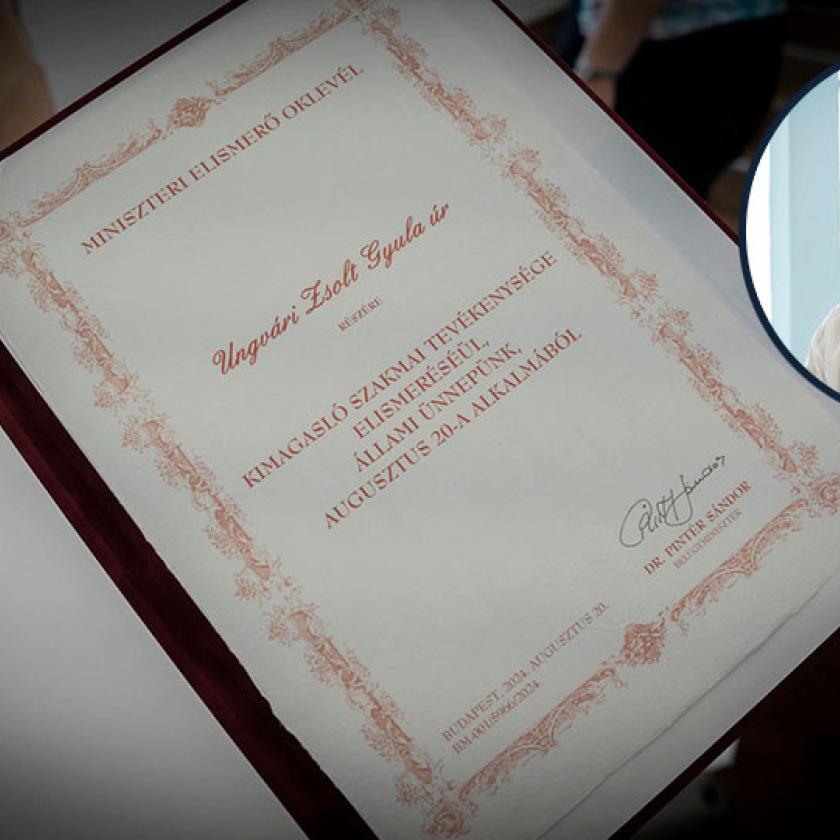 MINISZTERI ELISMERŐ OKLEVÉL
Ungvári Zsolt Gyula úr
RÉSZÉRE
KIMAGASLÓ SZAKMAI TEVÉKENYSÉGE
ELISMERÉSÉÜL,
ÁLLAMI ÜNNEPÜNK,
AUGUSZTUS 20-A ALKALMÁBÓL
DR. PINTÉR SÁNDOR
BELÜGYMINISZTER
BUDAPEST, 2024. AUGUSZTUS 20.
BM-001/8966/2024